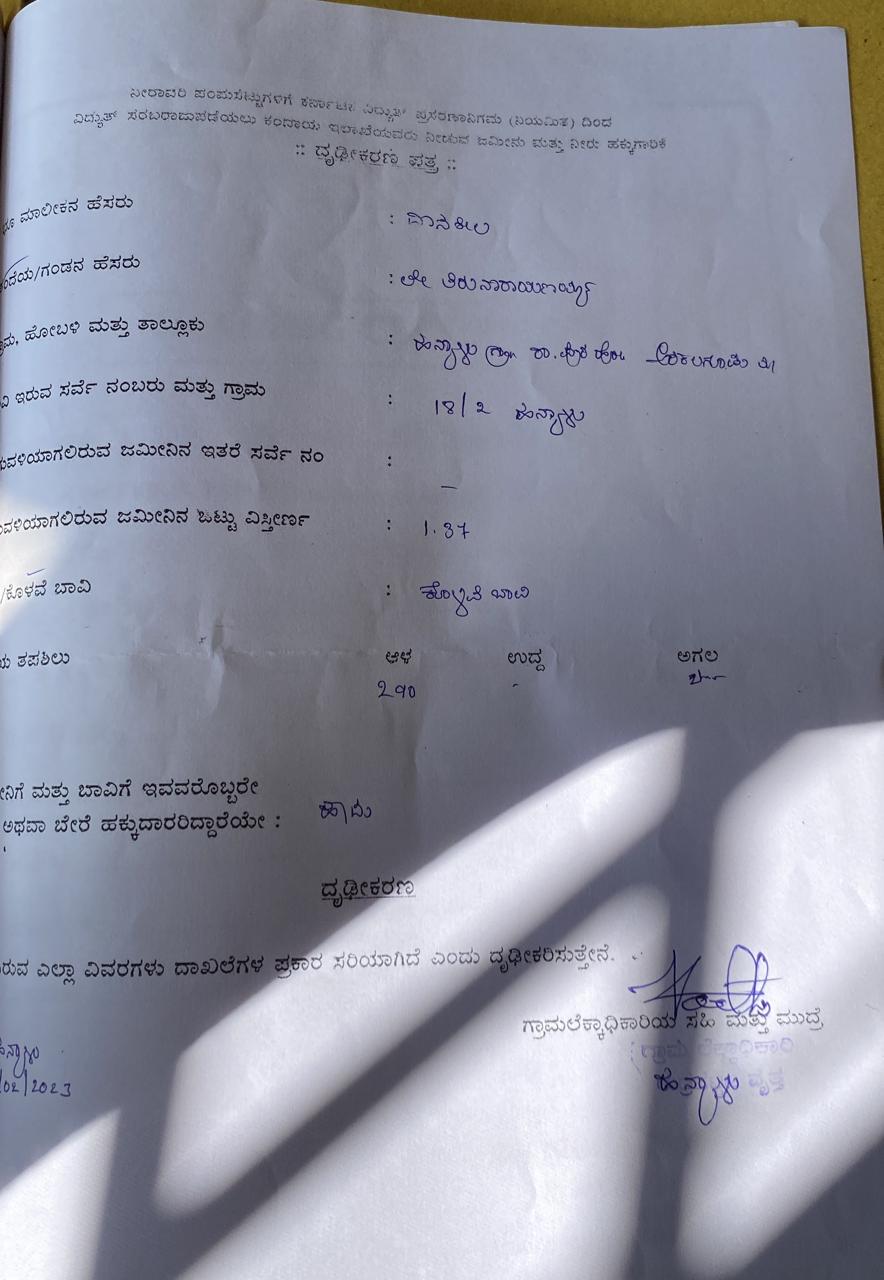 ನೀರಾವರಿ ಪಂಪುಸೆಟ್ಟುಗಳಿಗೆ ಕರ್ನಾಟಕ ವಿದ್ಯುತ್ ಪ್ರಸರಣಾನಿಗಮ (ನಿಯಮಿತ) ದಿಂದ
ವಿದ್ಯುತ್ ಸರಬರಾಜುಪಡೆಯಲು ಕಂದಾಯ ಇಲಾಖೆಯವರು ನೀಡುವ ಜಮೀನು ಮತ್ತು ನೀರು ಹಕ್ಕುಗಾರಿಕೆ
:: ದೃಢೀಕರಣ ಪತ್ರ ::
ಮಾಲೀಕನ ಹೆಸರು :
/ಗಂಡನ ಹೆಸರು :
ಹೋಬಳಿ ಮತ್ತು ತಾಲ್ಲೂಕು : ಹನ್ಯಾಳು
ಇರುವ ಸರ್ವೆ ನಂಬರು ಮತ್ತು ಗ್ರಾಮ : 18/2 ಹನ್ಯಾಳು
ಜಮೀನಿನ ಇತರೆ ಸರ್ವೆ ನಂ : –
ಜಮೀನಿನ ಒಟ್ಟು ವಿಸ್ತೀರ್ಣ : 1.37
/ಕೊಳವೆ ಬಾವಿ : ಕೊಳವೆ ಬಾವಿ
ತಪಶಿಲು ಆಳ ಉದ್ದ ಅಗಲ
-
ಮತ್ತು ಬಾವಿಗೆ ಇವವರೊಬ್ಬರೇ
ಅಥವಾ ಬೇರೆ ಹಕ್ಕುದಾರರಿದ್ದಾರೆಯೇ : ಹೌದು
ದೃಢೀಕರಣ
ಎಲ್ಲಾ ವಿವರಗಳು ದಾಖಲೆಗಳ ಪ್ರಕಾರ ಸರಿಯಾಗಿದೆ ಎಂದು ದೃಢೀಕರಿಸುತ್ತೇನೆ.
ಗ್ರಾಮಲೆಕ್ಕಾಧಿಕಾರಿಯ ಸಹಿ ಮತ್ತು ಮುದ್ರೆ
ಗ್ರಾಮ ಲೆಕ್ಕಾಧಿಕಾರಿ
ಹನ್ಯಾಳು ವೃತ್ತ
/02/2023